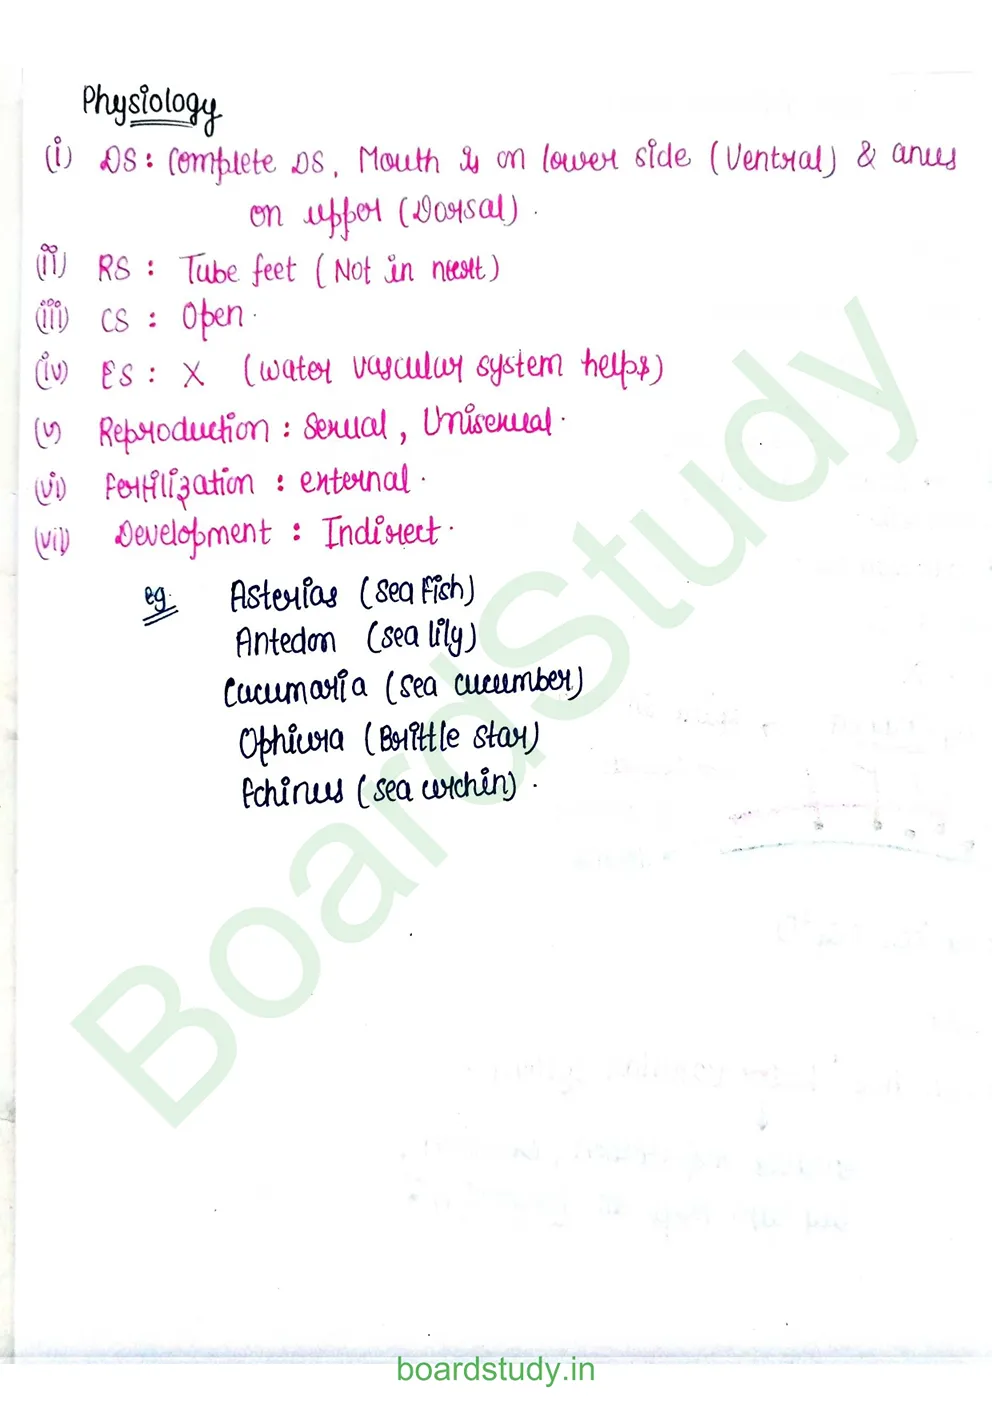 Physiology
(i) DS : Complete DS, Mouth is on lower side (Ventral) & anus
on upper (Dorsal).
(ii) RS : Tube feet (Not in ncert)
(iii) CS : Open.
(iv) ES : X (water vascular system helps)
(v) Reproduction : Sexual, Unisexual.
(vi) Fertilization : external.
(vii) Development : Indirect.
eg. Asterias (Sea Fish)
Antedon (sea lily)
Cucumaria (sea cucumber)
Ophiura (Brittle star)
Echinus (sea urchin).
BoardStudy
boardstudy.in